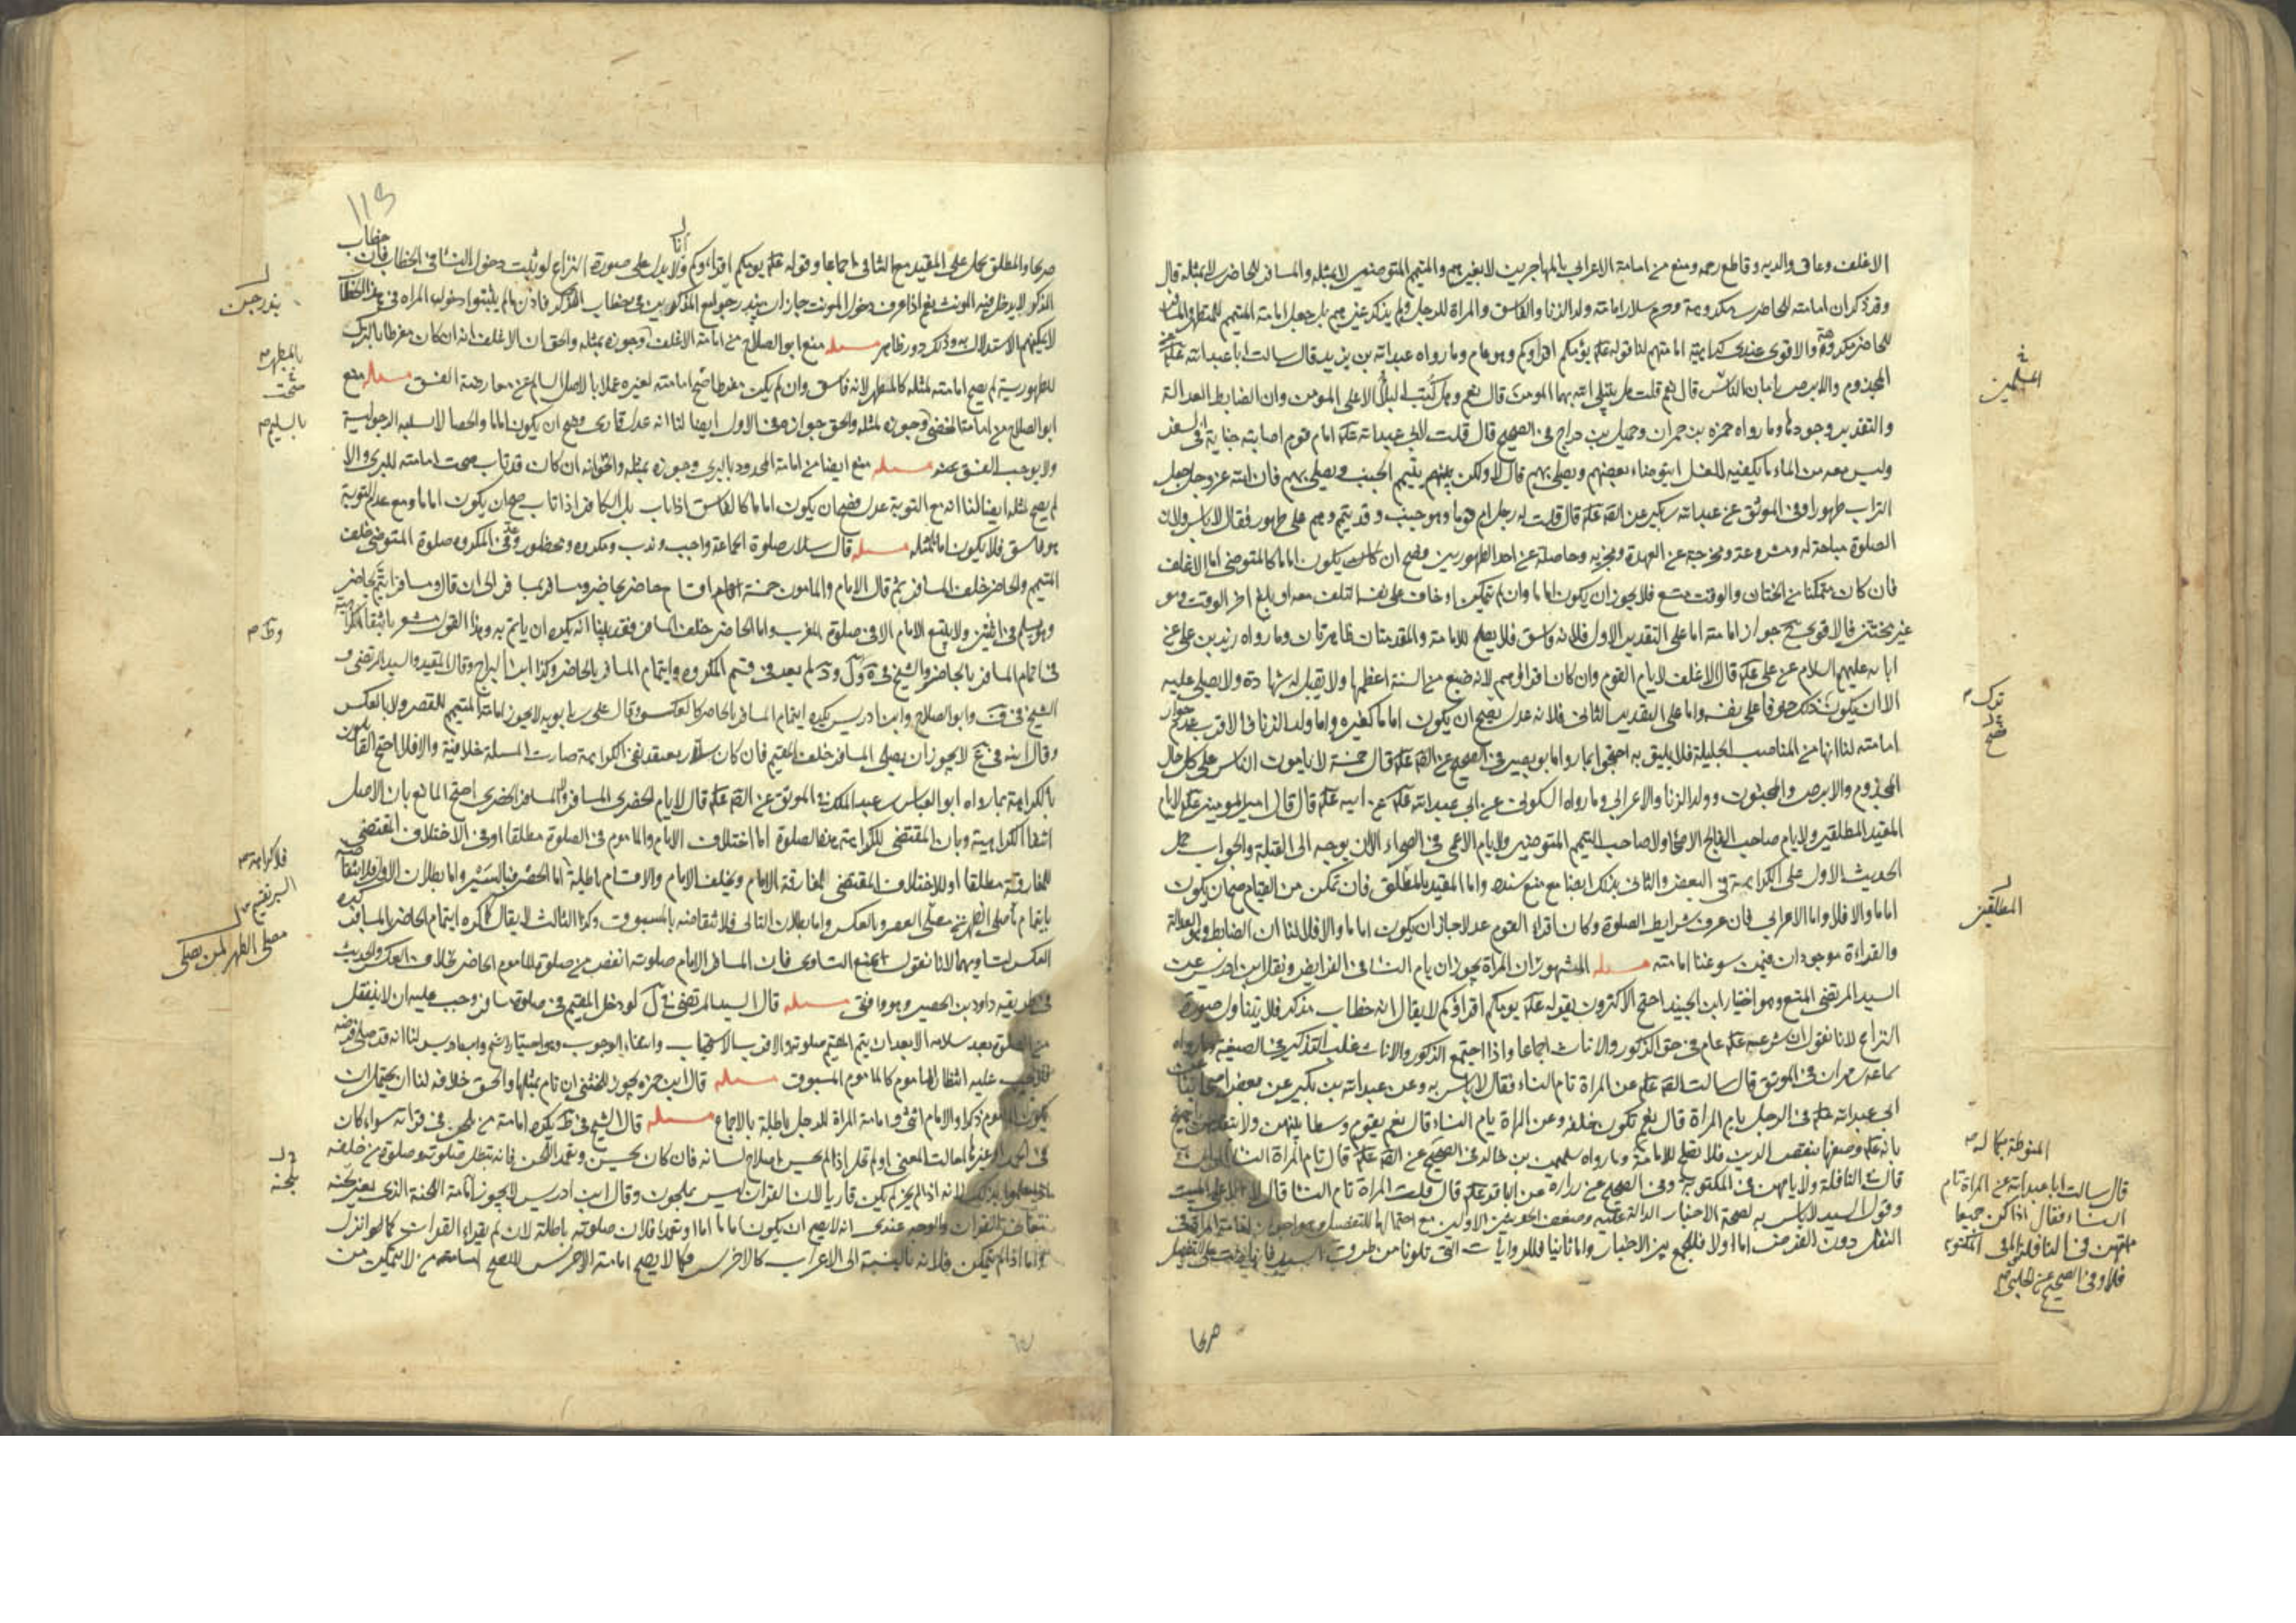 الاغلف وعاق والديه وقاطع رحمه ومنع من امامة الاعرابي بالمهاجرين لا بغيرهم والمتيمم المتوضئين لا بمثله والمسافر للحاضر لا بمثله قال
وقد ذكر ان امامته للحاضر مكروهة وحرم سلار امامة ولد الزنا والفاسق والمراة للرجل ولم يذكر غيرهم بل جعل امامة المتيمم للمتطهر والمسافر
للحاضر مكروهة والاقوى عندى كراهية امامتهم لنا قوله عليه يؤمكم اقراوكم وهو عام وما رواه عبد الله بن يزيد قال سالت ابا عبد الله عليه عن
المجذوم والابرص يامان الناس قال نعم قلت هل يبتلى الله بهما المومن قال نعم وهل كتب البلا الا على المومن وان الضابط العدالة
والتقدير وجودها وما رواه حمزه بن حمران وجميل بن دراج في الصحيح قال قلت لابي عبد الله عليه امام قوم اصابته جنابة في السفر
وليس معه من الماء ما يكفيه للغسل ايتوضاء بعضهم ويصلي بهم قال لا ولكن يتيمم الجنب ويصلي بهم فان الله عز وجل جعل
التراب طهورا وفي الموثق عن عبد الله بن بكير عن الصه عليه قال قلت له رجل ام قوما وهو جنب وقد تيمم وهم على طهور فقال لا باس ولان
الصلوة مباحة له ومشروعة ومخرجة عن العهدة ومجزيه وحاصلة عن احد الطهورين وصح ان يكون اماما كالمتوضي اما الاغلف
فان كان متمكنا من الختان والوقت متسع فلا يجوز ان يكون اماما وان لم يتمكن او خاف على نفسه التلف معه او بلغ اخر الوقت وهو
غير مختتن فالاقوى جواز امامته اما على التقدير الاول فلانه فاسق فلا يصلح للامامة والمقدمتان ظاهرتان وما رواه زيد بن علي عن
ابايه عليهم السلام عن علي عليه قال الاغلف لا يام القوم وان كان اقراهم لانه ضيع من السنة اعظمها ولا تقبل له شهادة ولا يصلي عليه
الا ان يكون ذلك خوفا على نفسه واما على التقدير الثاني فلانه عدل فصح ان يكون اماما كغيره واما ولد الزنا فالاقرب عدم جواز
امامته لنا انها من المناصب الجليلة فلا يليق به احتجوا بما رواه ابو بصير في الصحيح عن الصه عليه قال خمسة لا يامون الناس على كل حال
المجذوم والابرص والمجنون وولد الزنا والاعرابي وما رواه السكوني عن ابي عبد الله عليه عن ابيه عليه قال قال امير المومنين عليه لا يام
المقيد المطلقين ولا يام صاحب الفالج الاصحا ولا صاحب التيمم المتوضئين ولا يام الاعمى في الصحراء الا ان يوجه الى القبلة والجواب حمل
الحديث الاول على الكراهية في البعض والثاني بذلك ايضا مع منع سنده واما المقيد بالمطلق فان تمكن من القيام صح ان يكون
اماما والا فلا واما الاعرابي فان عرف شرايط الصلوة وكان اقراء القوم عدلا جاز ان يكون اماما والا فلا لنا ان الضابط وهو العدالة
والقراءة موجودان فيمن سوغنا امامته مسله المشهور ان المراة يجوز ان يام النسا في الفرايض ونقل ابن ادريس عن
السيد المرتضى المنع وهو اختيار ابن الجنيد احتج الاكثرون بقوله عليه يومكم اقراؤكم لا يقال انه خطاب مذكر فلا يتناول صورة
النزاع لانا نقول ان شرعه عليه عام في حق الذكور والاناث اجماعا واذا اجتمع الذكور والاناث غلب التذكير في الصيغة وما رواه
سماعة بن مهران في الموثق قال سالت الصه عليه عن المراة تام النساء فقال لا باس به وعن عبد الله بن بكير عن بعض اصحابنا
ابي عبد الله عليه في الرجل يام المراة قال نعم تكون خلفه وعن المراة يام النساء قال نعم يقوم وسطا بينهن ولا يتقدمهن احتج
بانه عليه وصفها بنقص الدين فلا تصلح للامامة وما رواه سليمن بن خالد في الصحيح عن الصه عليه قال تام المراة النسا
قال في النافلة ولا يامهن في المكتوبة وفي الصحيح عن زراره عن الباقر عليه قال قلت المراة تام النسا قال لا الا على الميت
وقول السيد لا باس به لصحة الاخبار الدالة عليه وضعف الحديثين الاولين مع احتمالها للتفصيل
النفل دون الفرض اما اولا فللجمع بين الاخبار واما ثانيا فللروايات التي تلونا من طرق السيد
اعلمين
ترك
فصح
المطلقين
المنوطة بكماله
قال سالت ابا عبد الله عن المراة تام
النساء فقال اذا كن جميعا
امتهن في النافلة فاما في المكتوبة
فلا وفي الصحيح عن الحلبي
١١٥
صريحا والمطلق يحمل على المقيد مع التنافي اجماعا وقوله عليه يومكم اقراوكم لا يدل على صورة النزاع لو ثبت دخول النسا في الخطاب فان خطاب
الذكور لا يدخل فيه المونث نعم اذا عرف دخول المونث جاز ان يندرجوا مع المذكورين في خطاب الذكر فاذن ما لم يثبتوا دخول المراة في هذا الخطاب
لا يمكنهم الاستدلال به وذلك دور ظاهر مسله منع ابو الصلاح من امامة الاغلف وجوزه بمثله والحق ان الاغلف ان كان مفرطا بالترك
للطهورية لم يصح امامته لمثله كالمتطهر لانه فاسق وان لم يكن مفرطا صح امامته لغيره عملا بالاصل السالم عن معارضة الفسق مسله منع
ابو الصلاح من امامة الخصى وجوزه لمثله والحق جوازه في الاول ايضا لنا انه عدل قارى وصح ان يكون اماما والخصا لا يسلبه الرجولية
ولا يوجب الفسق عنه مسله منع ايضا من امامة المحدود بالبرى وجوزه بمثله والحق انه ان كان قد تاب صحت امامته للبرى والا
لم يصح لمثله ايضا لنا انه مع التوبة عدل فصح ان يكون اماما كالفاسق اذا تاب بل الكافر اذا تاب صح ان يكون اماما ومع عدم التوبة
هو فاسق فلا يكون اماما لمثله مسله قال سلار صلوة الجماعة واجب وندب ومكروه ومحظور وعد في المكروه صلوة المتوضي خلف
المتيمم والحاضر خلف المسافر ثم قال الامام والماموم خمسة اقسام حاضر بحاضر ومسافر بمسافر الى ان قال ومسافر يتم بحاضر
وهو يسلم في اثنين ولا يتبع الامام الا في صلوة المغرب واما الحاضر خلف المسافر فقد بينا انه يكره ان ياتم به وهذا القول مشعر بانتفا الكراهية
في ايتمام المسافر بالحاضر والشيخ لم يعد في قسم المكروه وايتمام المسافر بالحاضر وكذا ابن البراج وقال المفيد والسيد المرتضى و
الشيخ في ف وابو الصلاح وابن ادريس يكره ايتمام المسافر بالحاضر كالعكس وقال علي بن بابويه لا يجوز امامة المتمم للمقصر ولا بالعكس
وقال ابنه لا يجوز ان يصلى المسافر خلف المقيم فان كان سلار يعتقد نفى الكراهية صارت المسلة خلافية والا فلا احتج القايلون
بالكراهة بما رواه ابو العباس بن عبد الملك في الموثق عن الصه عليه قال لا يام الحضرى المسافر ولا المسافر الحضرى احتج المانع بان الاصل
انتفا الكراهية وبان المقتضى للكراهية في هذه الصلوة اما اختلاف الامام والماموم في الصلوة مطلقا او في الاختلاف المقتضى
للمفارقة مطلقا او للاختلاف المقتضى لمفارقة الامام وتخلف الامام والاقسام باطلة اما الحصر فبالسبر واما بطلان الاول فلانتقاضه
بايتمام مصلى الظهر بمصلى العصر وبالعكس واما بطلان الثاني فلانتقاضه بالمسبوق وكذا الثالث لا يقال كما كره ايتمام الحاضر بالمسافر كره
العكس لتساويهما لانا نقول نمنع التساوى فان المسافر الامام صلوته انقص من صلوة الماموم الحاضر بخلاف العكس والحديث
في طريقه داود بن الحصين وهو واقفى مسله قال السيد المرتضى لو دخل المقيم في صلوة مسافر وجب عليه ان لا ينفتل
من الصلوة بعد سلامه الا بعد ان يتم المقيم صلوته والاقرب الاستحباب وانتفاء الوجوب وهو اختيار الشيخ وابن ادريس لنا انه قد صلى فرضه
فلا يجب عليه انتظار الماموم كالماموم المسبوق مسله قال ابن حمزه يجوز للخنثى ان تام بمثلها والحق خلافه لنا ان يحتمل ان
يكون الماموم ذكرا والامام انثى وامامة المراة للرجل باطلة بالاجماع مسله قال الشيخ يكره امامة من يلحن في قراته سواء كان
في الحمد او غيرها احالت المعنى او لم تحل اذا لم يحسن اصلاح لسانه فان كان يحسن وتعمد اللحن فانه تبطل صلوته وصلوة من خلفه
اذا علموا بذلك لانه اذا لم يكن قاريا لان القران ليس بملحون وقال ابن ادريس لا يجوز امامة اللحنة الذى يغير بلحنه
معاني القران والوجه عندى انه لا يصح ان يكون اماما اما اذا تعمد فلان صلوته باطلة لانه لم يقراء القران كما هو انزل
واما اذا لم يتمكن فلانه بالنسبة الى الاعراب كالاخرس فكما لا يصح امامة الاخرس للصحيح من لا يتمكن من
يندرجن
بالمطهر
صحت
بالسليم
فلا كراهة
السير فقيم
مصلى الظهر لمن يصلى
بلحنه